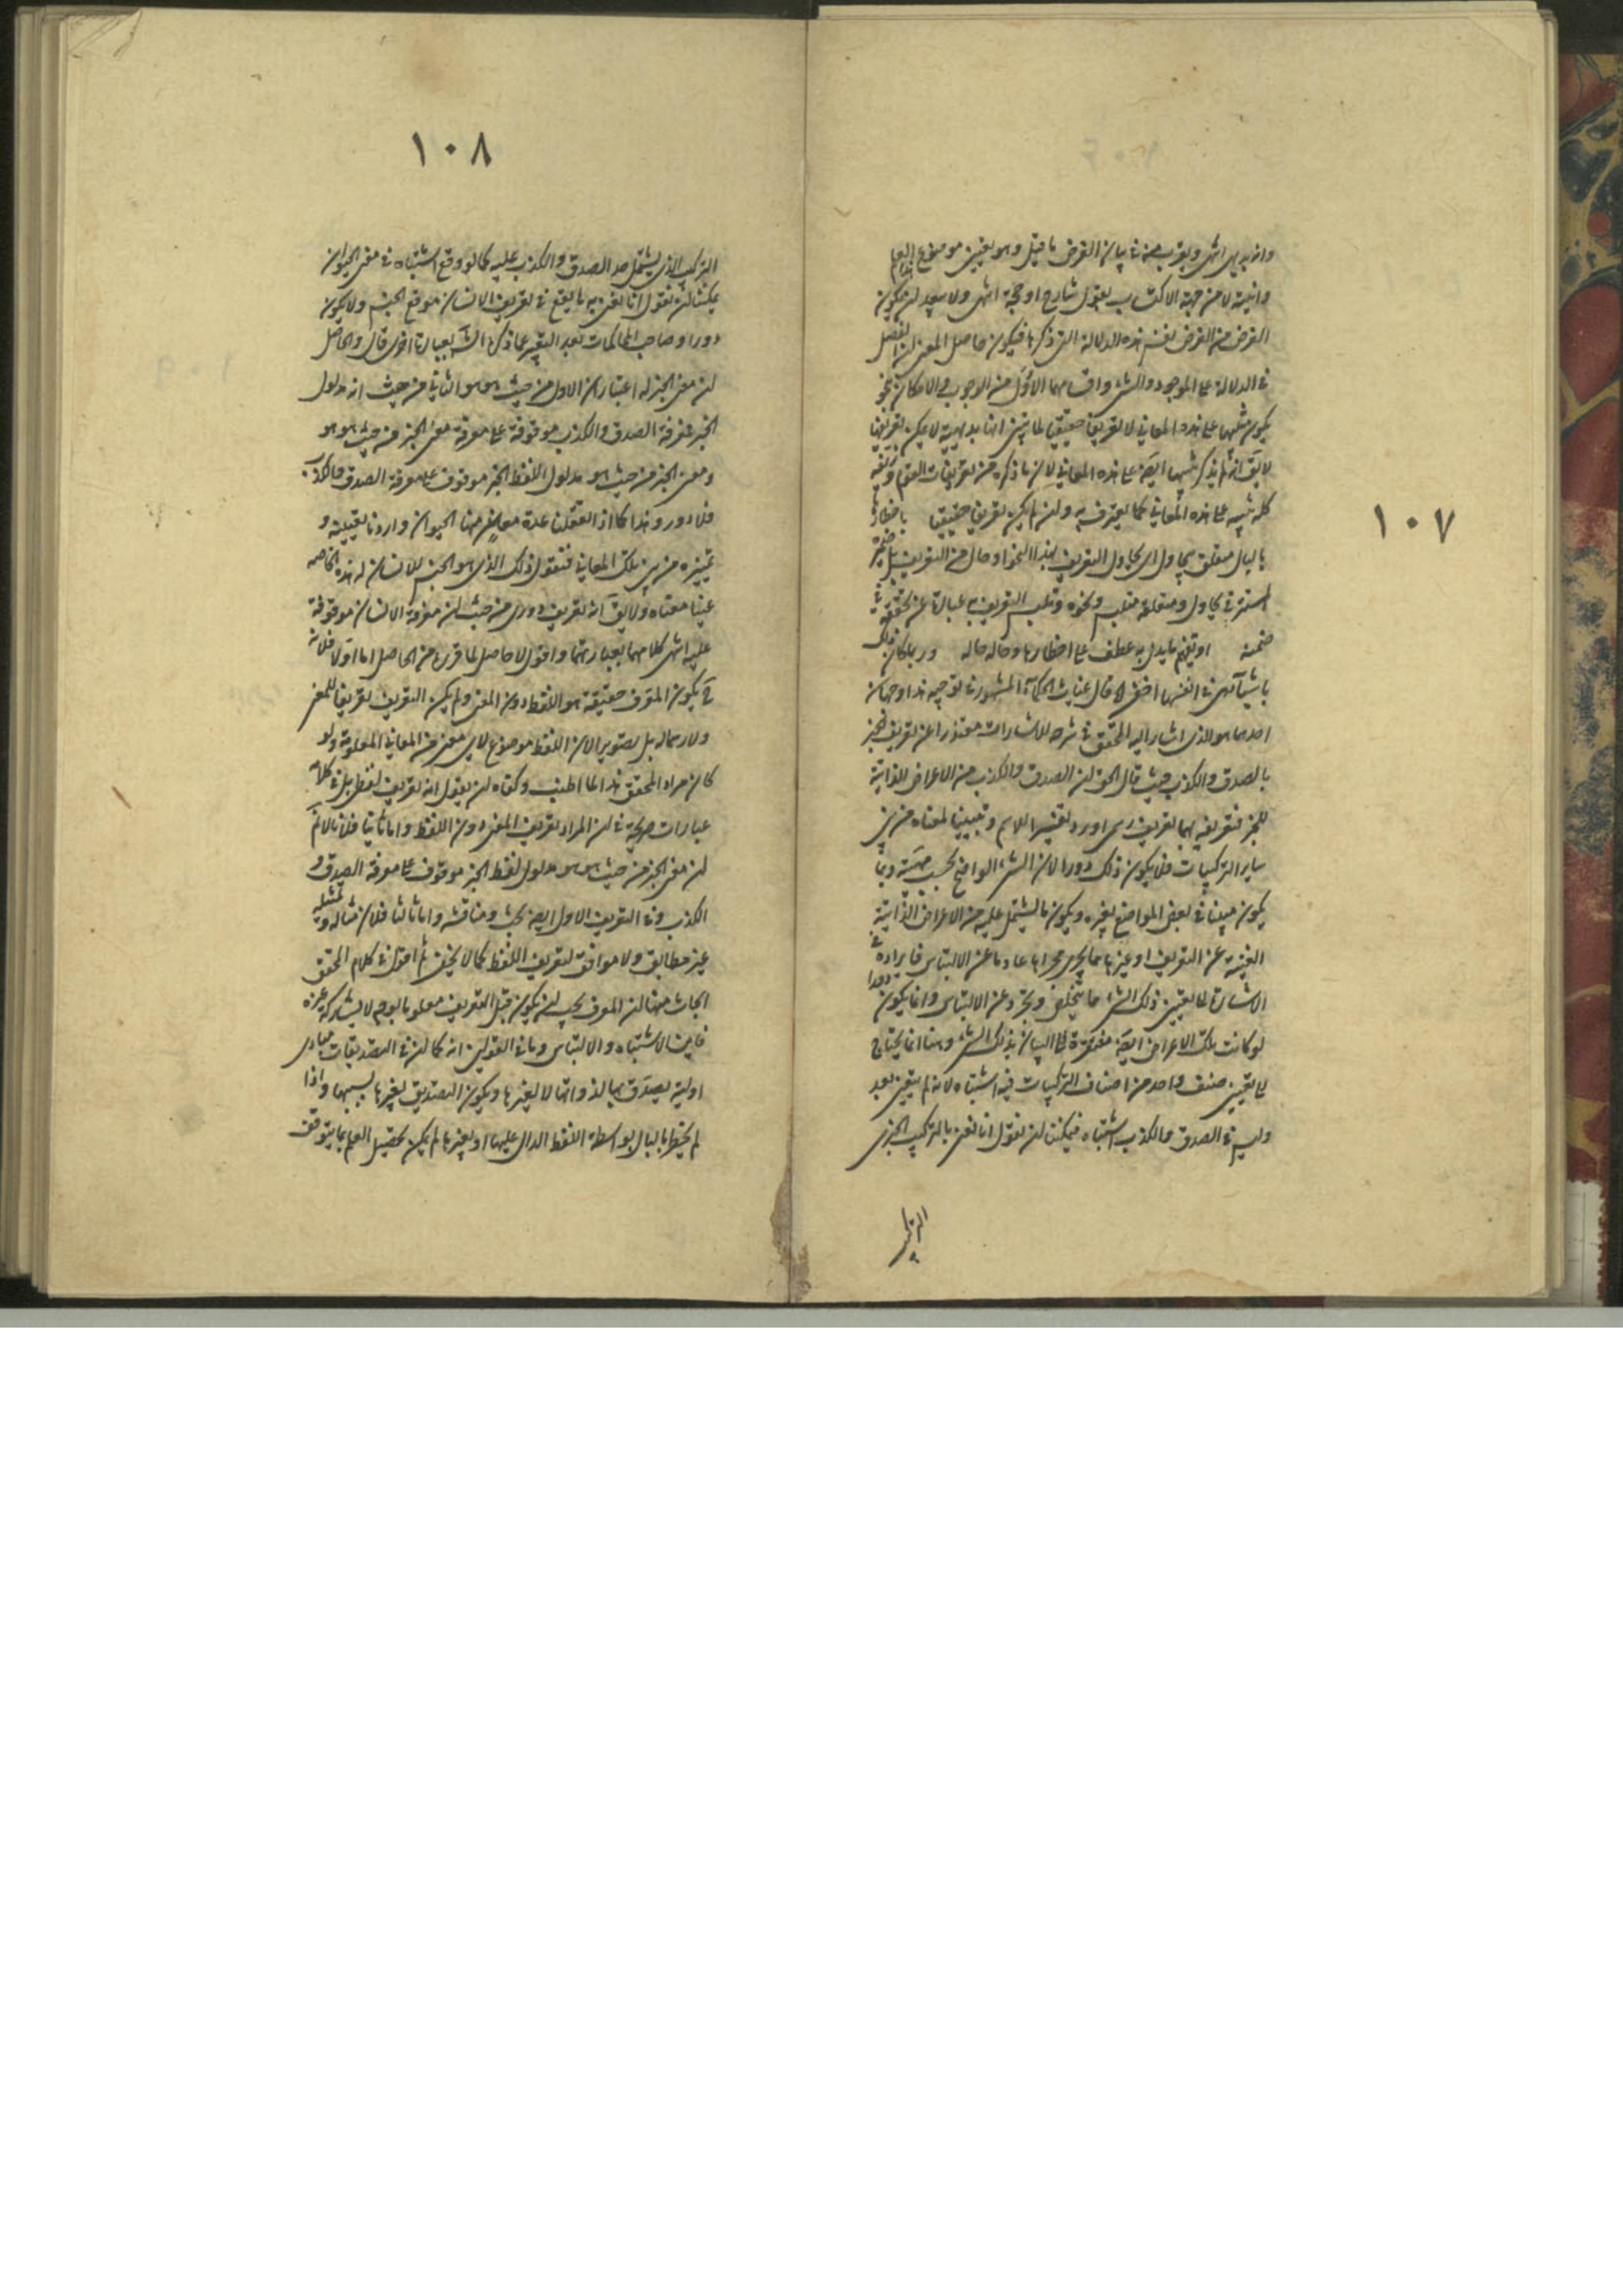 ١٠٧
وانه بديهى انتهى ويقرب منه فى بيان الغرض ما قيل وهو تعيين موضوع العلم
وانيته لا من جهة الاكتساب بقول شارح او حجة انتهى ولا يبعد لن يكون
الغرض من الغرض نفسه هذه الدلالة التى ذكرها فيكون حاصل المعنى لن الفصل
فى الدلالة على الموجود والشىء واقسامهما الاول من الوجوب والامكان بنحو
يكون تنبيها على هذه المعانى لا تعريفا حقيقيا لما تبين انها بديهية لا يمكن تعريفها
لا يق انه لم يذكر تنبيها ايضا على هذه المعانى لان ما ذكره من تعريفات القوم وتزييفه
كله تنبيه على هذه المعانى كما يعترف به ولن لم يكن تعريفا حقيقيا باخطارها
بالبال متعلق بيحاول اى يحاول التعريف بهذا النحو او حال من التعريف بل
المستتر فى يحاول ومتعلقة
ضمنه او يفهم ما يدل به عطف على اخطارها وحاله حاله وربما كان ذلك
باشياء هى فى انفسها اخفى قال غياث الحكماء المشهور فى توجيه هذا وجهان
احدهما هو الذى اشار اليه المحقق فى شرحه للاشارات معتذرا عن تعريف الخبر
بالصدق والكذب حيث قال الحق لن الصدق والكذب من الاعراض الذاتية
للخبر فتعريفه بهما تعريف رسمى اورد تفسيرا للاسم وتعيينا لمعناه من بين
ساير التركيبات فلا يكون ذلك دورا لان الشىء الواضح بحسب مهيته ربما
يكون مبينا فى بعض المواضع بغيره ويكون ما يشتمل عليه من الاعراض الذاتية
الغنية عن التعريف او غيرها مما يجرى مجراها عاديا عن الالتباس فايراده فى
الاشارة الى تعيين ذلك الشىء مما يلخصه ويجرده عن الالتباس وانما يكون دورا
لو كانت تلك الاعراض ايضا مفتقرة الى البيان بذلك الشىء وهنا انما يحتاج
الى تعيين صنف واحد من اصناف التركيبات فيه اشتباه لانه لم يتعين بعد
وليس فى الصدق والكذب اشتباه فيمكننا لن نقول انا نعنى بالتركيب الخبرى
التركيب
١٠٨
التركيب الذى يشتمل حد الصدق والكذب عليه كما لو وقع اشتباه فى معنى الحيوان
يمكننا لن نقول انا نعنى به ما يقع فى تعريف الانسان موقع الجنس ولا يكون
دورا وصاحب المحاكمات بعد التعبير عما ذكره الش بعبارة اخرى قال والحاصل
لن معنى الخبر له اعتباران الاول من حيث هو هو الثانى من حيث انه مدلول
الخبر فمعرفة الصدق والكذب موقوفة على معرفة معنى الخبر من حيث هو هو
ومعنى الخبر من حيث هو مدلول اللفظ الخبر موقوف على معرفة الصدق والكذب
فلا دور وهذا كما اذا تعقلنا عدة معان منها الحيوان واردنا تعيينه و
تمييزه من بين تلك المعانى فنقول ذلك الذى هو الجنس للانسان له هذه الخاصه
عينا معناه ولا يق انه تعريف دورى من حيث لن معرفة الانسان موقوفة
عليه انتهى كلامهما بعبارتهما واقول لا حاصل لما قرره من الحاصل اما اولا فلانه
ح يكون المعرف حقيقة هو اللفظ دون المعنى ولم يكن التعريف تعريفا للمعنى
ولا رسما له بل تصويرا لان اللفظ موضوع لاى معنى من المعانى المعلومة ولو
كان مراد المحقق هذا لما اطنب وكفاه لن يقول انه تعريف لفظى بل فى كلامه
عبارات صريحة فى لن المراد تعريف المعنى دون اللفظ واما ثانيا فلانا لانم
لن معنى الخبر من حيث هو هو مدلول لفظ الخبر موقوف على معرفة الصدق و
الكذب وفى التعريف الاول ايضا بحث ومناقشة واما ثالثا فلان مثاله وتمثيله
غير مطابق ولا موافق لتعريف اللفظ كما لا يخفى ثم اقول فى كلام المحقق
ابحاث منها لن المعرف يجب لن يكون قبل التعريف معلوما بوجه لا يشاركه غيره
فاين الاشتباه والالتباس وثانى القولين انه كما لن فى التصديقات مبادى
اولية يصدق بها لذواتها لا لغيرها ويكون التصديق بغيرها بسببها واذا
لم يخطر بالبال بواسطة اللفظ الدال عليها او بغيرها لم يكن تحصيل العلم بما يتوقف